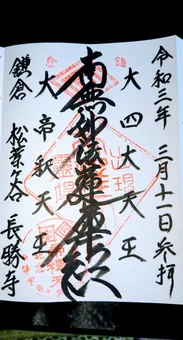 令和三年 三月十一日参拝
大四大天王
南無妙法蓮華経
大帝釈天王
鎌倉 松葉谷 長勝寺